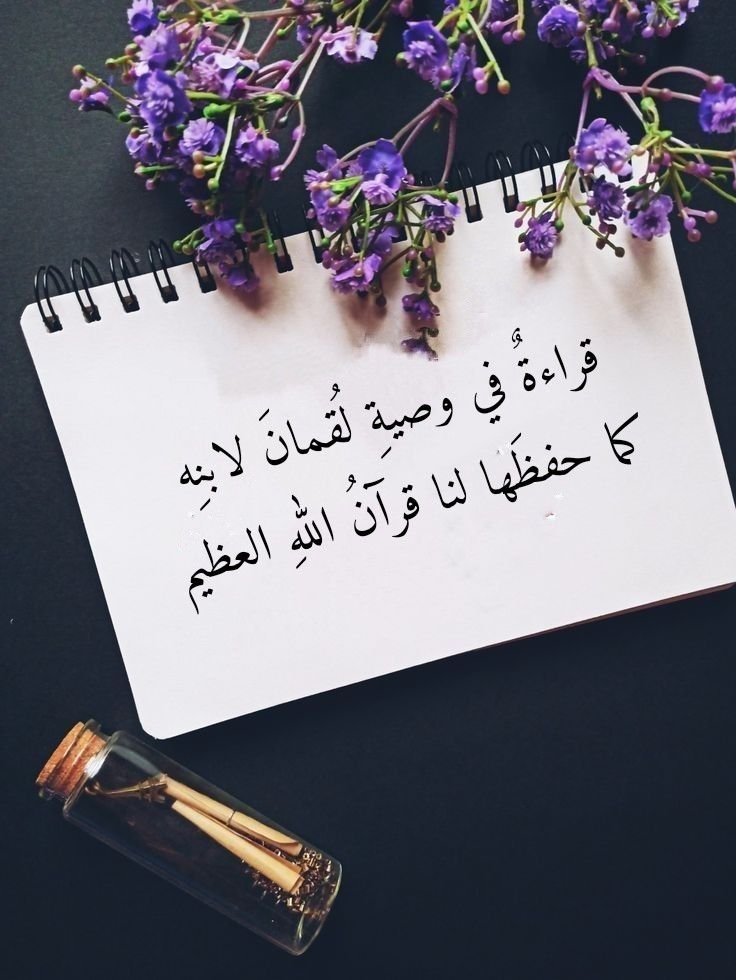 قراءةٌ في وصيةِ لُقمانَ لابنِه
كما حفظَها لنا قرآنُ اللهِ العظيم